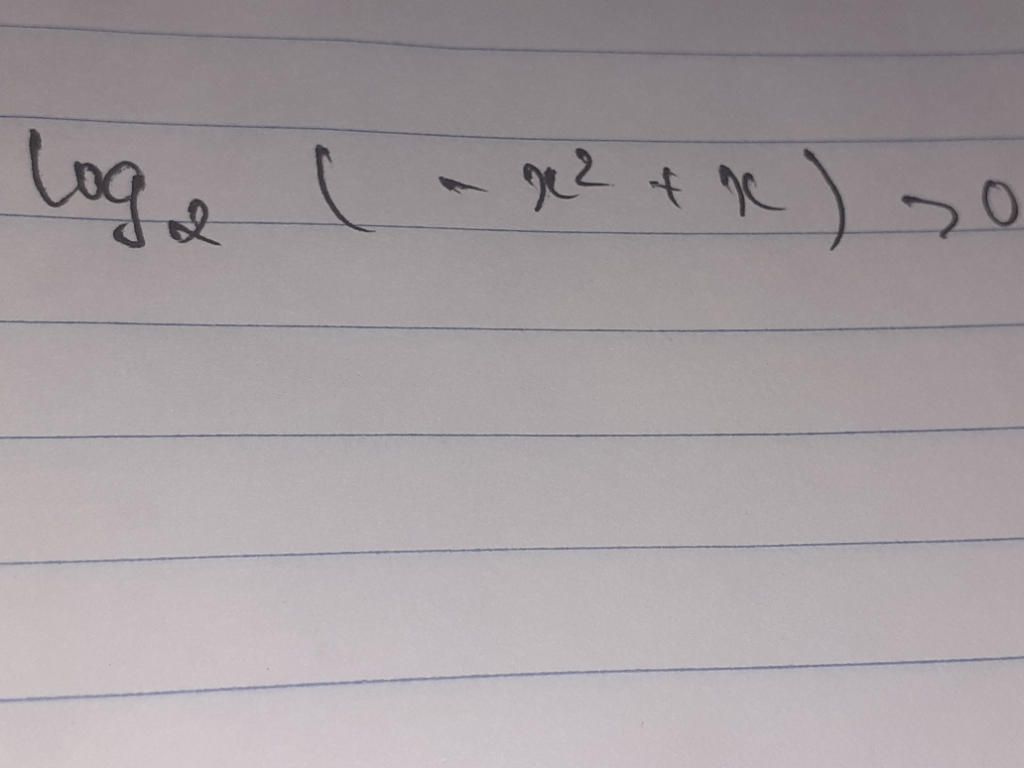 log₂ ( - x² + x ) > 0